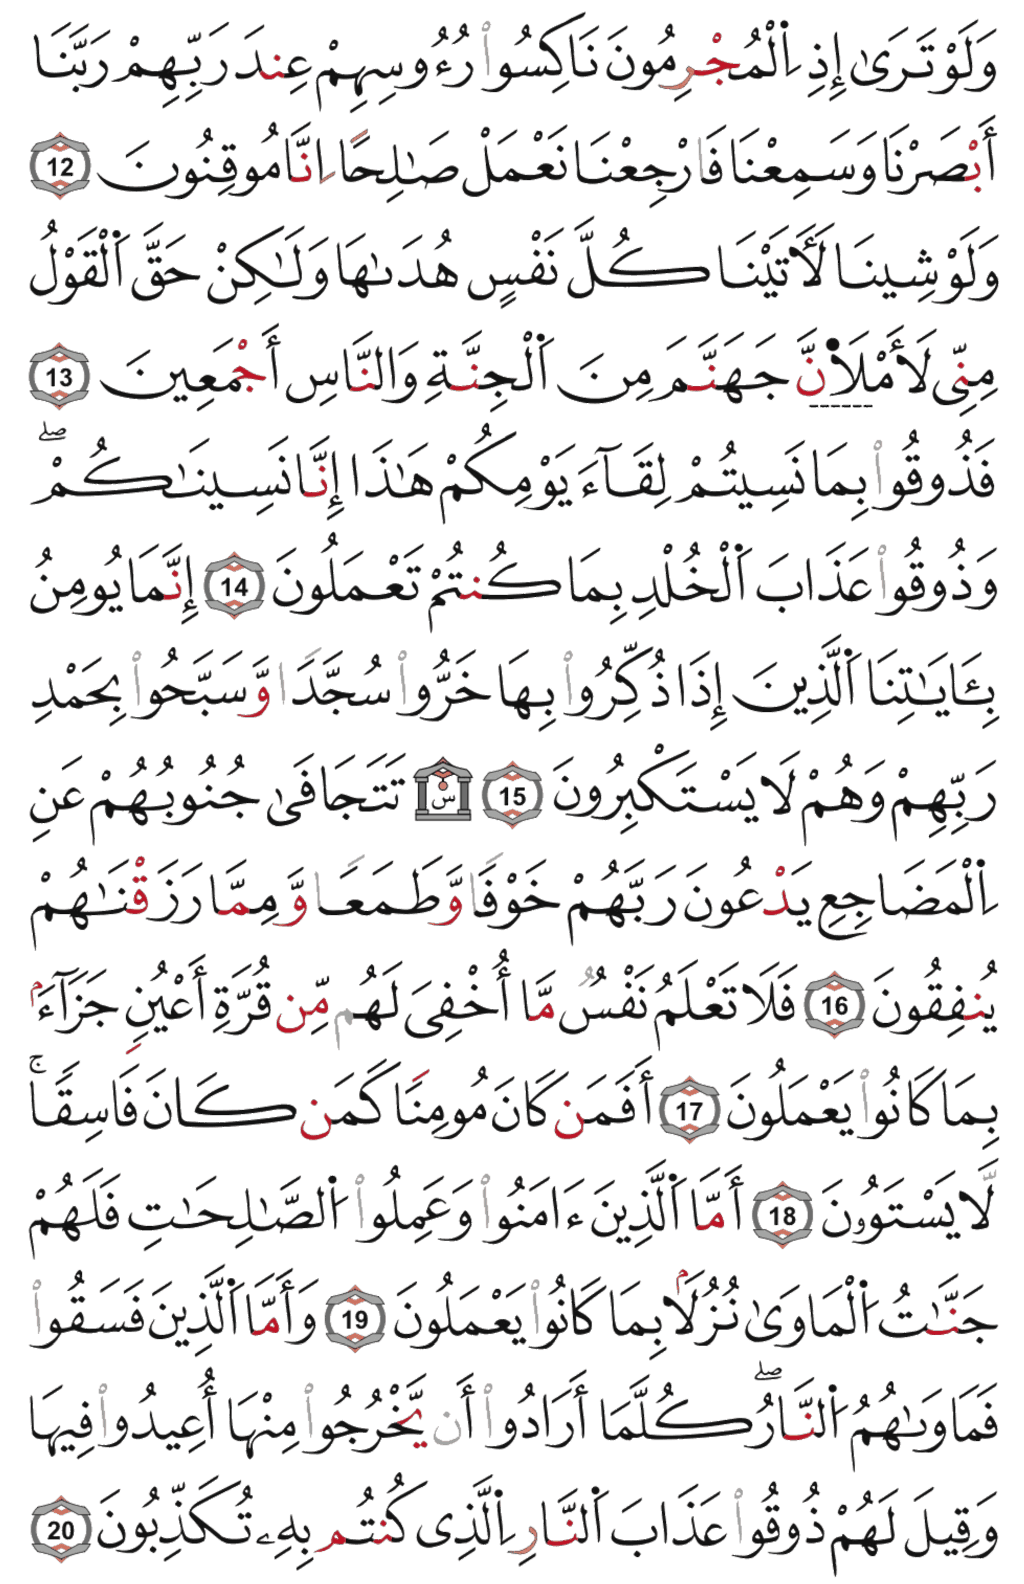 وَلَوْ تَرَىٰ إِذِ اِ۬لْمُجْرِمُونَ نَاكِسُواْ رُءُوسِهِمْ عِندَ رَبِّهِمْ رَبَّنَا
أَبْصَرْنَا وَسَمِعْنَا فَارْجِعْنَا نَعْمَلْ صَٰلِحًا اِنَّا مُوقِنُونَ 12
وَلَوْ شِينَا لَأَتَيْنَا كُلَّ نَفْسٍ هُدَىٰهَا وَلَٰكِنْ حَقَّ اَ۬لْقَوْلُ
مِنِّى لَأَمْلَأَنَّ جَهَنَّمَ مِنَ اَ۬لْجِنَّةِ وَالنَّاسِ أَجْمَعِينَ 13
فَذُوقُواْ بِمَا نَسِيتُمْ لِقَآءَ يَوْمِكُمْ هَٰذَا إِنَّا نَسِينَٰكُمْۖ
وَذُوقُواْ عَذَابَ اَ۬لْخُلْدِ بِمَا كُنتُمْ تَعْمَلُونَ 14 إِنَّمَا يُومِنُ
بِـَٔايَٰتِنَا اَ۬لَّذِينَ إِذَا ذُكِّرُواْ بِهَا خَرُّواْ سُجَّدًا وَّسَبَّحُواْ بِحَمْدِ
رَبِّهِمْ وَهُمْ لَا يَسْتَكْبِرُونَ 15 س تَتَجَافَىٰ جُنُوبُهُمْ عَنِ
اِ۬لْمَضَاجِعِ يَدْعُونَ رَبَّهُمْ خَوْفًا وَّطَمَعًا وَّمِمَّا رَزَقْنَٰهُمْ
يُنفِقُونَ 16 فَلَا تَعْلَمُ نَفْسٌ مَّا أُخْفِىَ لَهُم مِّن قُرَّةِ أَعْيُنٍ جَزَآءَۢ
بِمَا كَانُواْ يَعْمَلُونَ 17 أَفَمَن كَانَ مُومِنًا كَمَن كَانَ فَاسِقًاۚ
لَّا يَسْتَوُۥنَ 18 أَمَّا اَ۬لَّذِينَ ءَامَنُواْ وَعَمِلُواْ اُ۬لصَّٰلِحَٰتِ فَلَهُمْ
جَنَّٰتُ اُ۬لْمَاوَىٰ نُزُلَۢا بِمَا كَانُواْ يَعْمَلُونَ 19 وَأَمَّا اَ۬لَّذِينَ فَسَقُواْ
فَمَاوَىٰهُمُ اُ۬لنَّارُۖ كُلَّمَا أَرَادُواْ أَن يَّخْرُجُواْ مِنْهَا أُعِيدُواْ فِيهَا
وَقِيلَ لَهُمْ ذُوقُواْ عَذَابَ اَ۬لنَّارِ اِ۬لَّذِى كُنتُم بِهِۦ تُكَذِّبُونَ 20